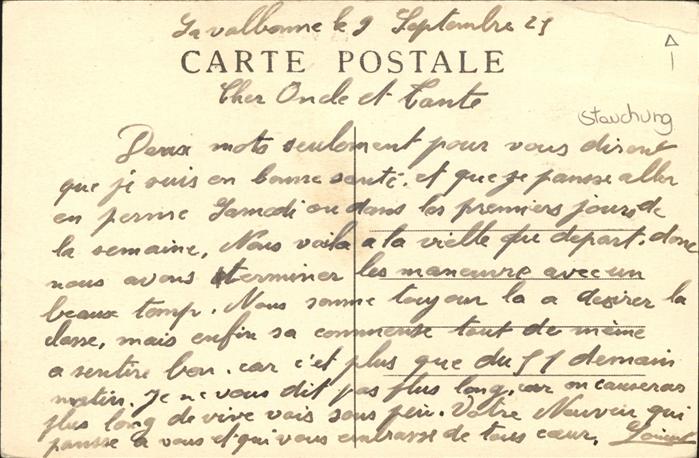 La valbonne le 9 Septembre 25
CARTE POSTALE
Cher Oncle et Tante
Stauchung
Deux mots seulement pour vous dirent
que je suis en bonne santé. et que je pansse aller
en perme Samedi ou dans les premiers jours de
la semaine. Nous voila a la vielle du depart. donc
nous avons terminer les maneuvre avec un
beaux temp. Nous somme toujour la a desirer la
classe, mais enfin sa commense tout de même
a sentire bon. car c'et plus que du 51 demain
matin. Je ne vous dit pas plus long, car on causeras
plus long de vive vais sous peu. Votre Neuveu qui
pansse a vous et qui vous embrasse de tous cœur.